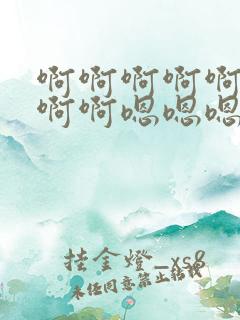 啊啊啊啊啊
啊啊嗯嗯嗯
挂金燈_xs8
未经同意禁止转载